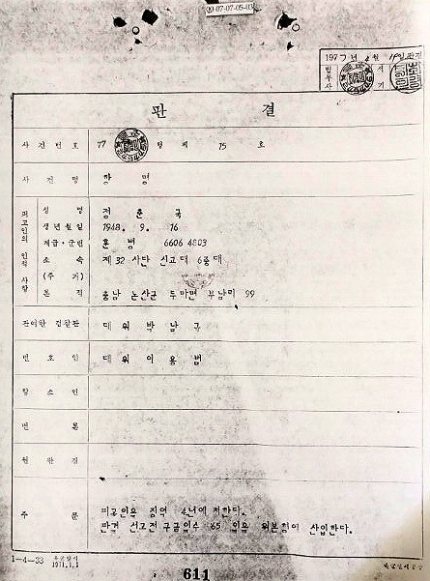 99-07-07-05-03
1977년 2월 19일
판결
사건번호 77 형제 75 호
사건명 항명
피고인의 인적 사항
성명 정춘국
생년월일 1948. 9. 16
계급·군번 훈병 6606 4803
소속 제32사단 신교대 6중대
(주거)
본적 충남 논산군 두마면 부남리 99
관여한 검찰관 대위 박남규
변호인 대위 이용범
항소인
변론
원판결
주문
피고인을 징역 4년에 처한다.
판결 선고전 구금일수 65 일을 위본형에 산입한다.
1-4-33
1971.1.1
611